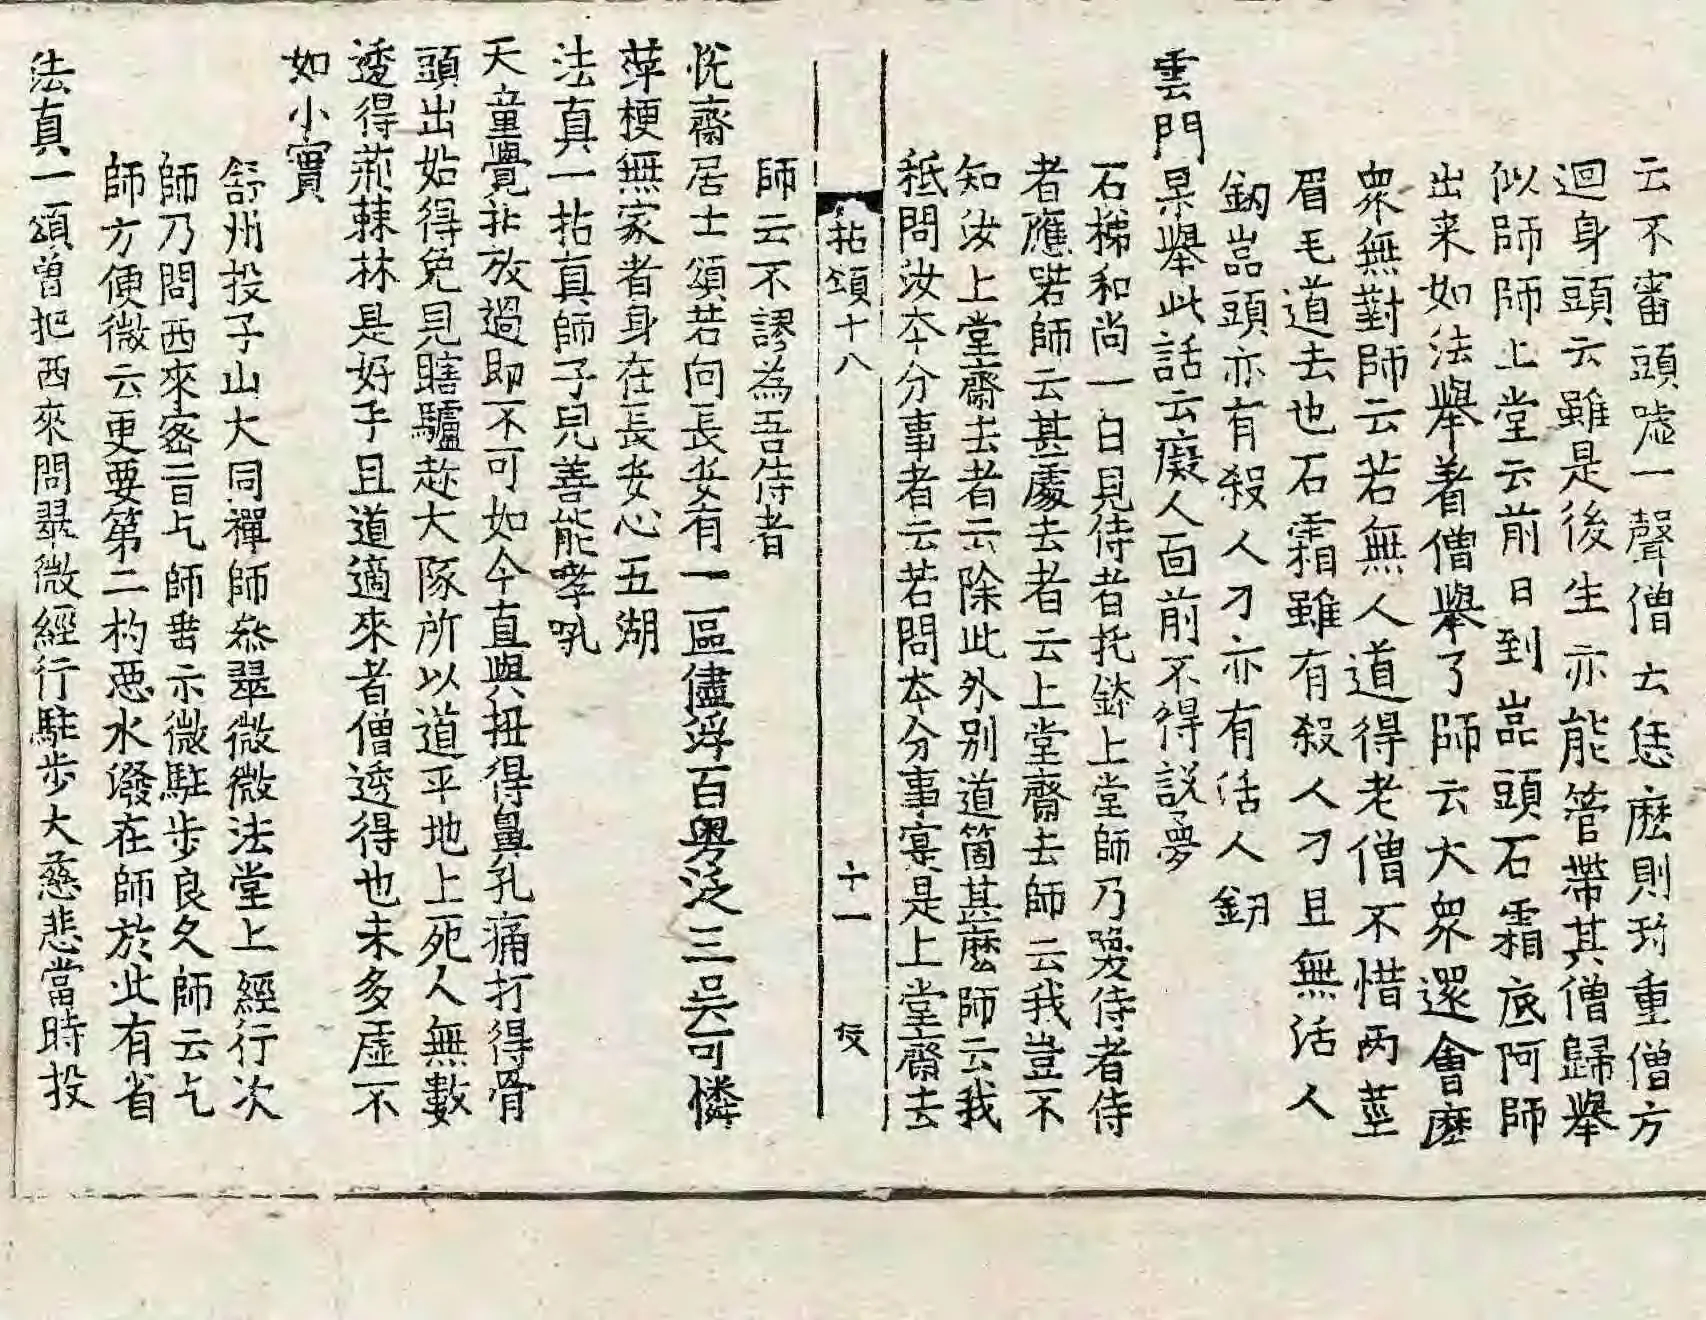 云不審頭噓一聲僧云恁麽則珎重僧方
迴身頭云雖是後生亦能管帶其僧歸舉
似師師上堂云前日到嵓頭石霜底阿師
出来如法舉着僧舉了師云大衆還會麽
衆無對師云若無人道得老僧不惜两莖
眉毛道去也石霜雖有殺人刀且無活人
釰嵓頭亦有殺人刀亦有活人釰
雲門杲舉此話云癡人面前不得説夢
石梯和尚一日見侍者托鉢上堂師乃喚侍者侍
者應喏師云甚處去者云上堂齋去師云我豈不
知汝上堂齋去者云除此外别道箇甚麽師云我
秖問汝夲分事者云若問夲分事寔是上堂齋去
拈頌十八 十一
師云不謬為吾侍者
悅齋居士頌若向長安有一區儘浮百粤泛三吴可憐
萍梗無家者身在長安心五湖
法真一拈真師子兒善能哮吼
天童覺拈放過即不可如今直與扭得鼻孔痛打得骨
頭出始得免見瞎驢趂大隊所以道平地上死人無數
透得荊棘林是好手且道適來者僧透得也未多虛不
如小實
舒州投子山大同禪師叅翠微微法堂上經行次
師乃問西來密旨乞師垂示微駐步良久師云乞
師方便微云更要第二杓惡水潑在師於此有省
法真一頌曽把西來問翠微經行駐步大慈悲當時投